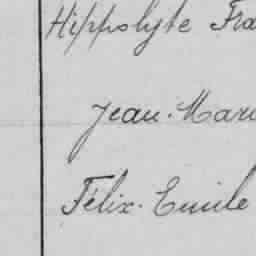 Hippolyte Fra
Jean-Mari
Félix-Emile